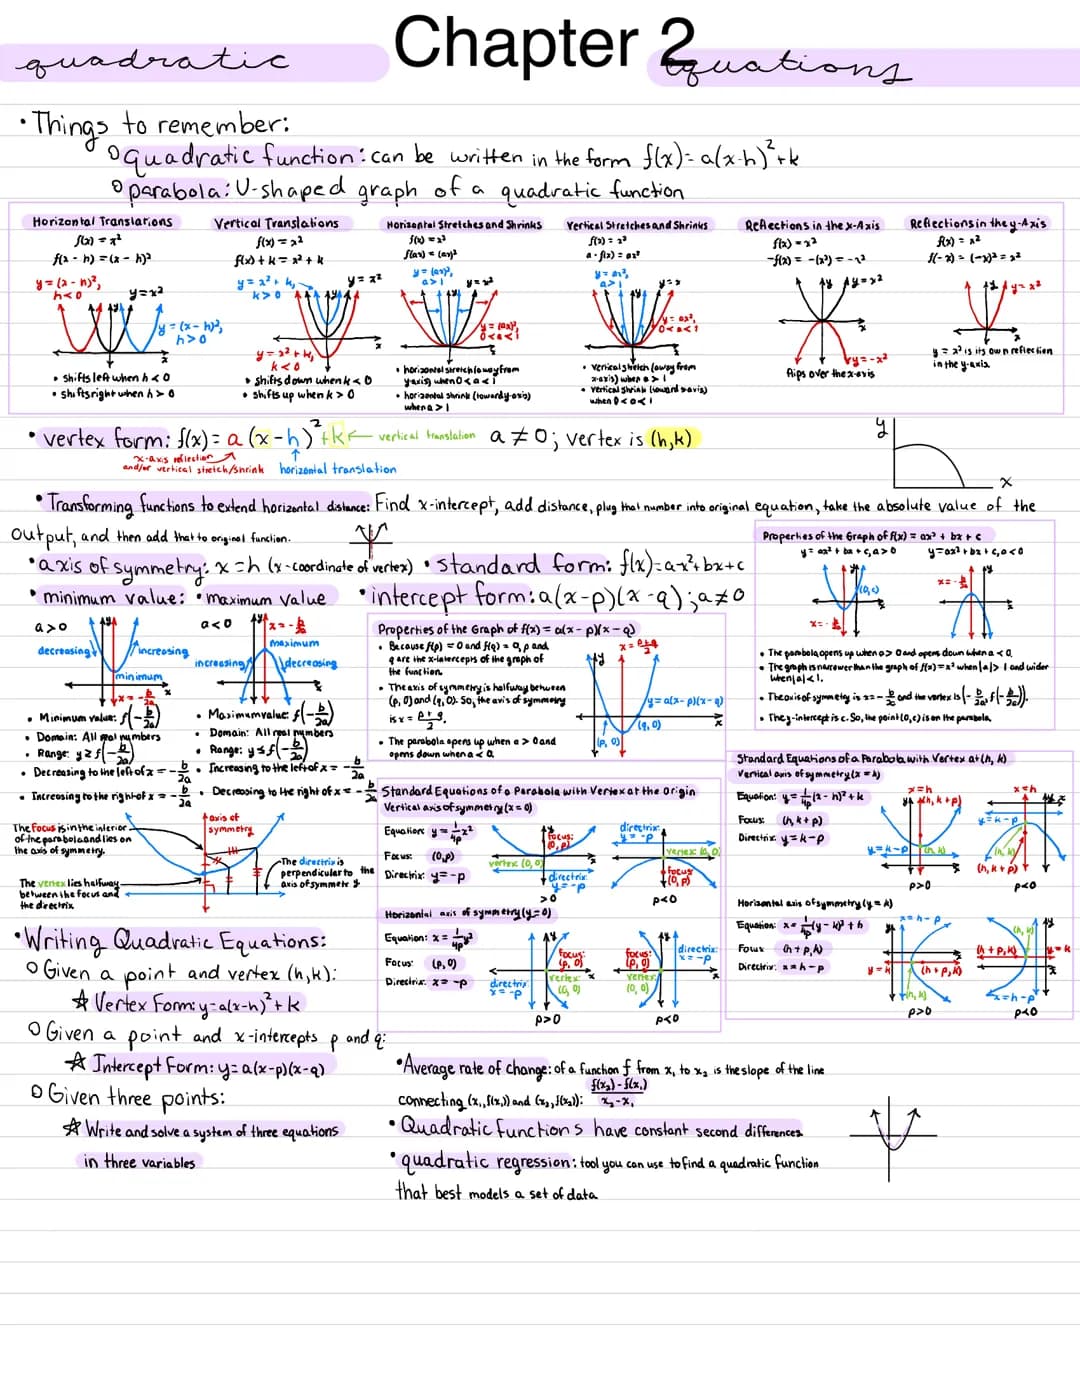 Chapter 2
quadratic equations
• Things to remember:
○ quadratic function: can be written in the form f(x) = a(x-h)²+k
○ parabola: U-shaped graph of a quadratic function
Horizontal Translations
f(x) = x²
f(x - h) = (x - h)²
y = (x - h)², h<0
y = x²
y = (x - h)², h>0
• shifts left when h < 0
• shifts right when h > 0
Vertical Translations
f(x) = x²
f(x) + k = x² + k
y = x² + k, k > 0
y = x²
y = x² + k, k < 0
• shifts down when k < 0
• shifts up when k > 0
Horizontal Stretches and Shrinks
f(x) = x²
f(ax) = (ax)²
y = (ax)², a > 1
y = x²
y = (ax)², 0 < a < 1
• horizontal stretch (away from
y-axis) when 0 < a < 1
• horizontal shrink (toward y-axis)
when a > 1
Vertical Stretches and Shrinks
f(x) = x²
a · f(x) = ax²
y = ax², a > 1
y = ax², 0 < a < 1
• vertical stretch (away from
x-axis) when a > 1
• vertical shrink (toward x-axis)
when 0 < a < 1
Reflections in the x-Axis
f(x) = x²
-f(x) = -(x²) = -x²
y = x²
y = -x²
flips over the x-axis
Reflections in the y-Axis
f(x) = x²
f(-x) = (-x)² = x²
y = x²
y = x² is its own reflection
in the y-axis.
• vertex form: f(x) = a (x-h)²+k ← vertical translation a ≠ 0; vertex is (h,k)
x-axis reflection
and/or vertical stretch/shrink horizontal translation
y
x
• Transforming functions to extend horizontal distance: Find x-intercept, add distance, plug that number into original equation, take the absolute value of the
output, and then add that to original function.
• axis of symmetry: x = h (x-coordinate of vertex) • standard form: f(x) = ax²+bx+c
• minimum value: • maximum value • intercept form: a(x-p)(x-q); a≠0
a>0
decreasing
increasing
minimum
x = -b/2a
• Minimum value: f(-b/2a)
• Domain: All real numbers
• Range: y ≥ f(-b/2a)
• Decreasing to the left of x = -b/2a
• Increasing to the right of x = -b/2a
a<0
x = -b/2a
maximum
increasing
decreasing
• Maximum value: f(-b/2a)
• Domain: All real numbers
• Range: y ≤ f(-b/2a)
• Increasing to the left of x = -b/2a
• Decreasing to the right of x = -b/2a
Properties of the Graph of f(x) = a(x - p)(x - q)
• Because f(p) = 0 and f(q) = 0, p and
q are the x-intercepts of the graph of
the function.
• The axis of symmetry is halfway between
(p, 0) and (q, 0). So, the axis of symmetry
is x = p+q/2.
• The parabola opens up when a > 0 and
opens down when a < 0.
x = p+q/2
y = a(x - p)(x - q)
(q, 0)
(p, 0)
Properties of the Graph of f(x) = ax² + bx + c
y = ax² + bx + c, a > 0
y = ax² + bx + c, a < 0
(0, c)
x = -b/2a
x = -b/2a
• The parabola opens up when a > 0 and opens down when a < 0.
• The graph is narrower than the graph of f(x) = x² when |a| > 1 and wider
when |a| < 1.
• The axis of symmetry is x = -b/2a and the vertex is (-b/2a, f(-b/2a)).
• The y-intercept is c. So, the point (0, c) is on the parabola.
The focus is in the interior
of the parabola and lies on
the axis of symmetry.
axis of
symmetry
The vertex lies halfway
between the focus and
the directrix.
The directrix is
perpendicular to the
axis of symmetry
Standard Equations of a Parabola with Vertex at the Origin
Vertical axis of symmetry (x = 0)
Equation: y = 1/4p x²
Focus: (0, p)
Directrix: y = -p
focus: (0, p)
vertex: (0, 0)
directrix: y = -p
>0
directrix: y = -p
vertex: (0, 0)
focus: (0, p)
p<0
Horizontal axis of symmetry (y = 0)
Equation: x = 1/4p y²
Focus: (p, 0)
Directrix: x = -p
directrix: x = -p
focus: (p, 0)
vertex: (0, 0)
p>0
focus: (p, 0)
vertex: (0, 0)
directrix: x = -p
p<0
Standard Equations of a Parabola with Vertex at (h, k)
Vertical axis of symmetry (x = h)
Equation: y = 1/4p (x - h)² + k
Focus: (h, k + p)
Directrix: y = k - p
x = h
(h, k + p)
y = k - p
(h, k)
p>0
x = h
y = k - p
(h, k)
(h, k + p)
p<0
Horizontal axis of symmetry (y = k)
Equation: x = 1/4p (y - k)² + h
Focus: (h + p, k)
Directrix: x = h - p
x = h - p
y = k
(h + p, k)
(h, k)
p>0
(h, k)
(h + p, k)
y = k
x = h - p
p<0
• Writing Quadratic Equations:
○ Given a point and vertex (h,k):
☆ Vertex Form: y=a(x-h)²+k
○ Given a point and x-intercepts p and q:
☆ Intercept Form: y=a(x-p)(x-q)
○ Given three points:
☆ Write and solve a system of three equations
in three variables
• Average rate of change: of a function f from x₁ to x₂ is the slope of the line
connecting (x₁, f(x₁)) and (x₂, f(x₂)): f(x₂) - f(x₁) / x₂ - x₁
• Quadratic functions have constant second differences
• quadratic regression: tool you can use to find a quadratic function
that best models a set of data